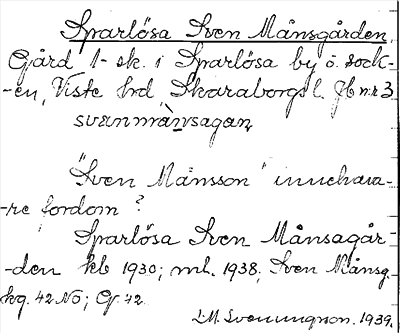 Sparlösa Sven Månsgården.
Gård 1-sk. i Sparlösa by o. sock-
-en, Viste hrd Skaraborgs l. Jb nr 3
svenmànsagan,
"Sven Månsson" innehava-
-re fordom?
Sparlösa Sven Månsagår-
-den kb 1930; ml. 1938, Sven Månsg.
kg. 42 No; G 72
J.M. Svenungson. 1939.